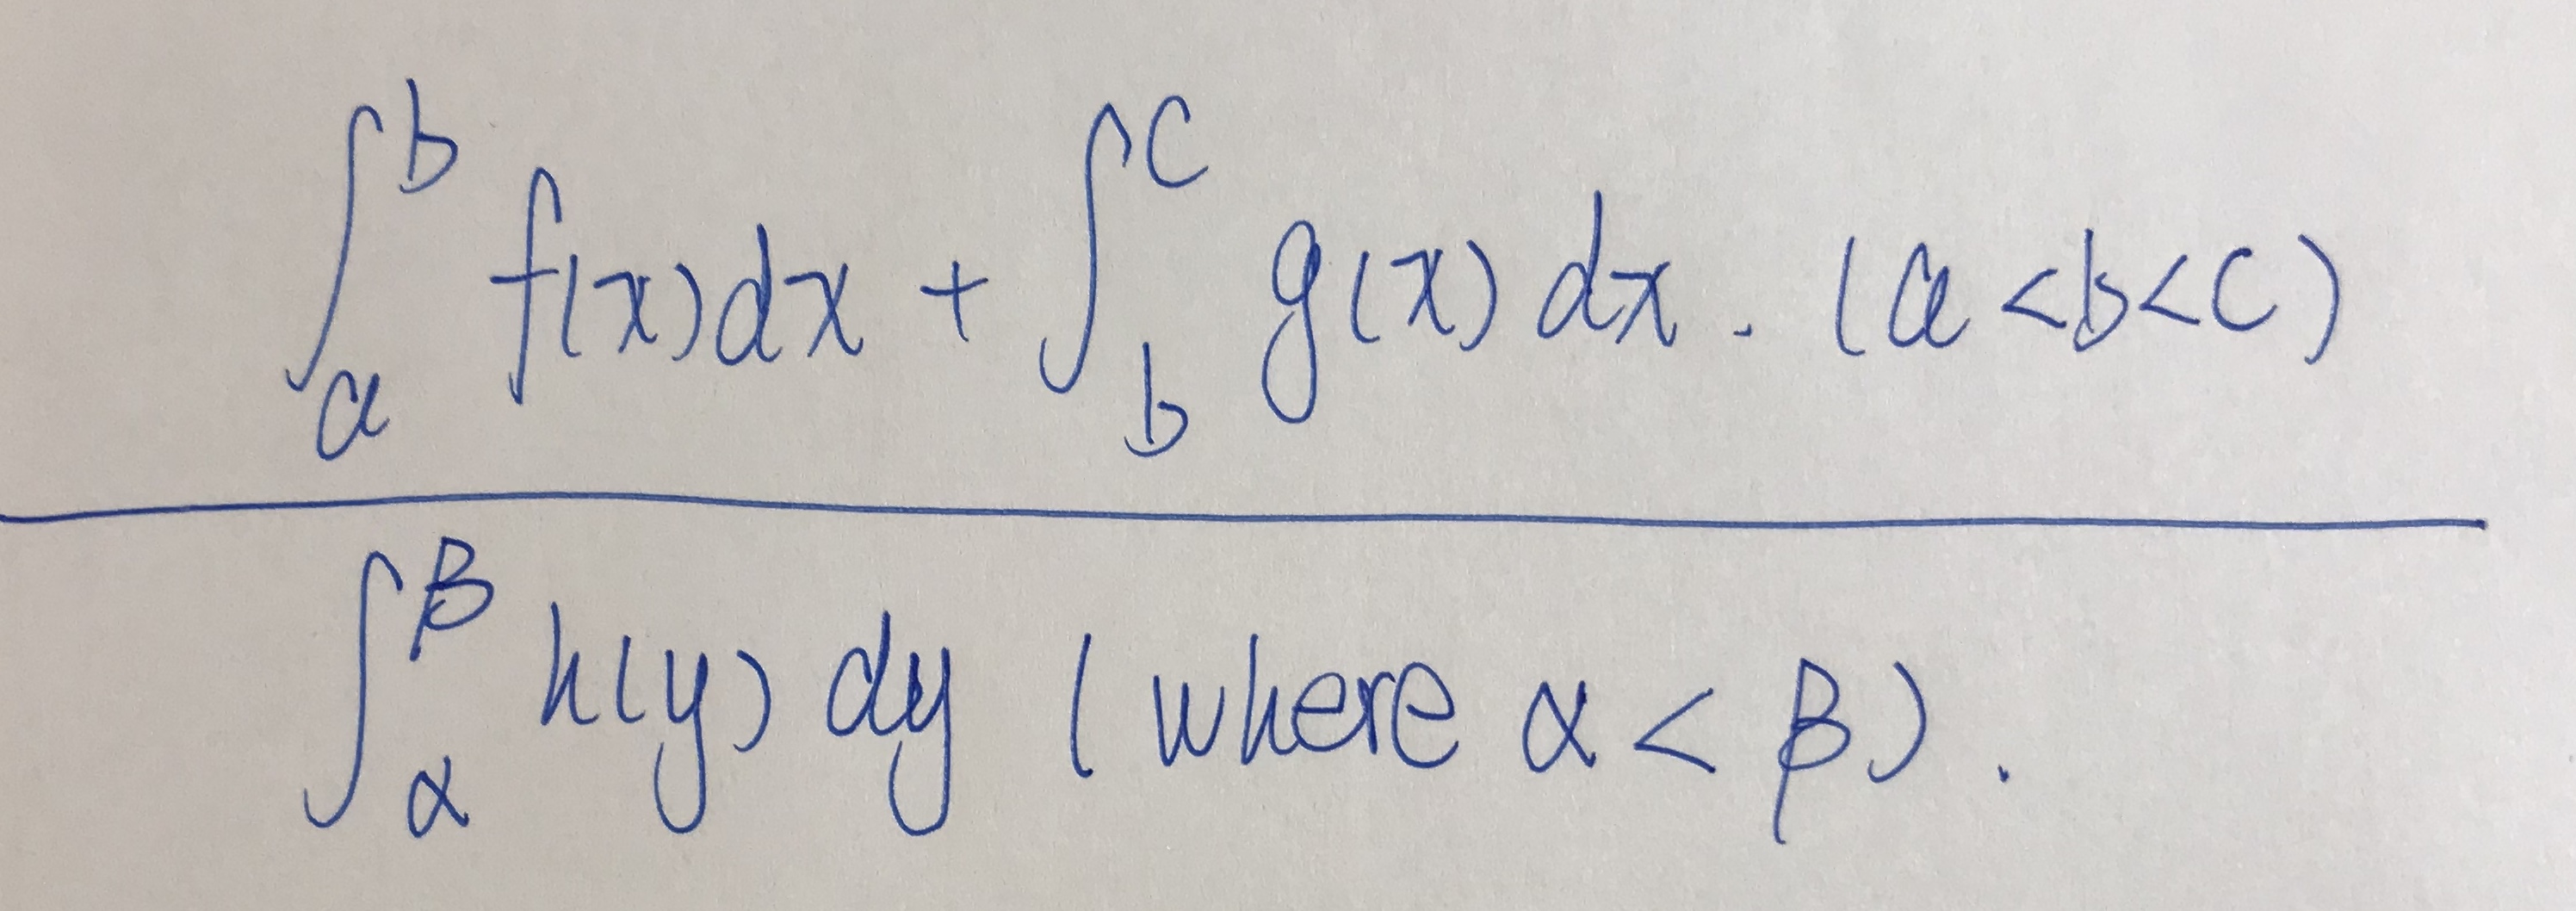 ∫_a^b f(x)dx + ∫_b^c g(x) dx . (a<b<c)
∫_α^β h(y) dy (where α < β).